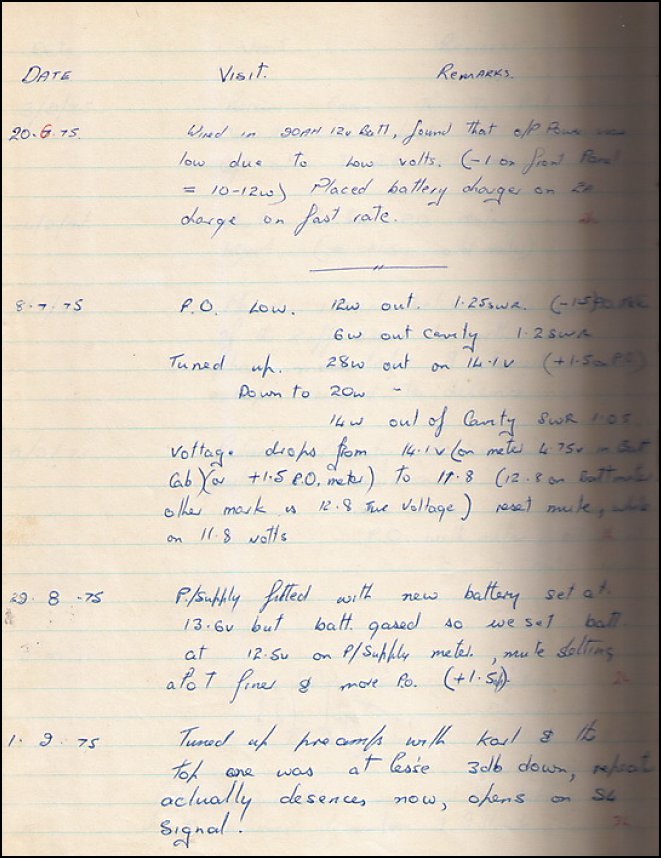 DATE VISIT. REMARKS.
20.6.75. Wired in 20AH 12v Batt, found that o/p Power was
low due to low volts. (-1 on front Panel
= 10-12w) Placed battery charger on 2A
charge on fast rate.
8.7.75 P.O. LOW. 12w out. 1.25 SWR. (-1.5)
6w out cavity 1.2 SWR
Tuned up. 28w out on 14.1v (+1.5 on P.O.)
Down to 20w -
14w out of Cavity SWR 1.05
Voltage drops from 14.1v (on meter 4.75v in Batt
Cab) (or +1.5 P.O. meter) to 11.8 (12.8 on Battmeter
other mark is 12.8 True Voltage) reset mute, while
on 11.8 volts
29.8.75 P/Supply fitted with new battery set at
13.6v but batt. gased so we set batt.
at 12.5v on P/Supply meter, mute setting
aloT finer & more Po. (+1.5)
1.9.75 Tuned up preamps with Karl & the
top one was at lesse 3db down, repeat
actually desences now, opens on S4
Signal.